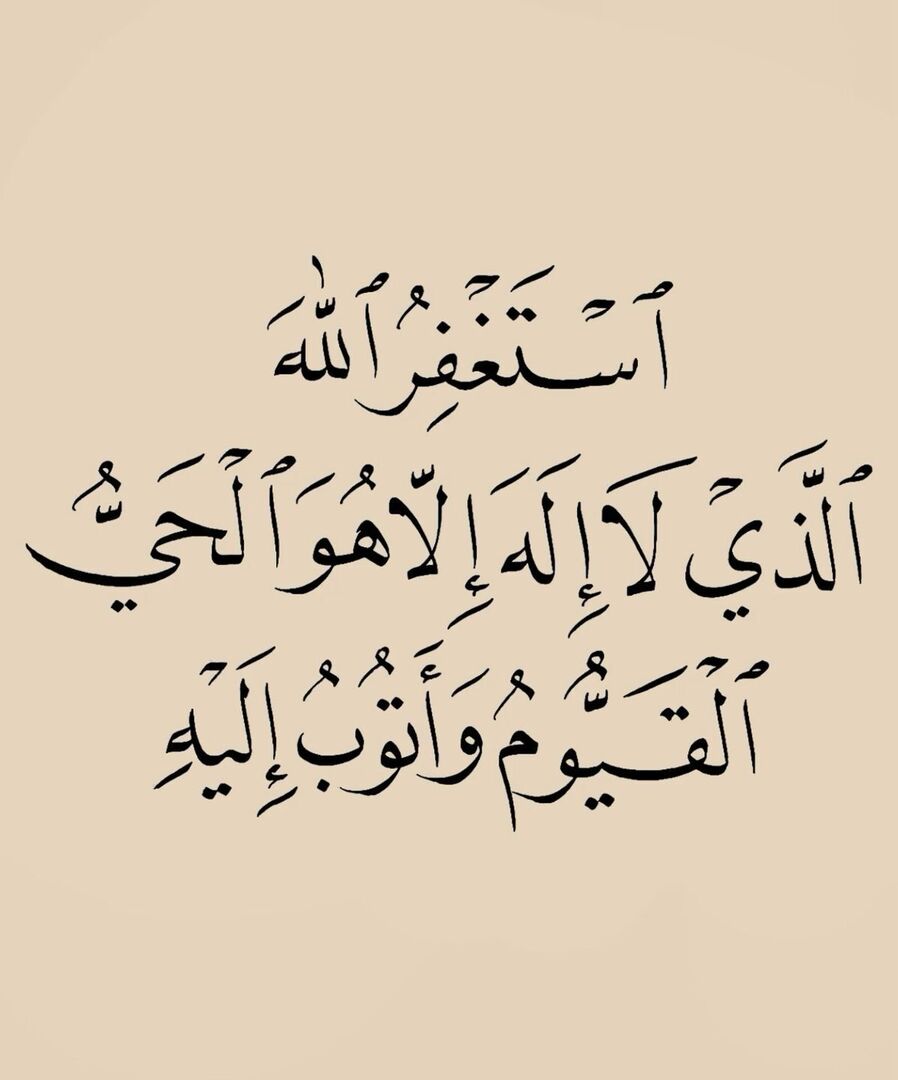 ٱسْتَغْفِرُ ٱللَّهَ
ٱلَّذِيْ لَا إِلَهَ إِلَّا هُوَ ٱلْحَيُّ
ٱلْقَيُّومُ وَأَتُوبُ إِلَيْهِ